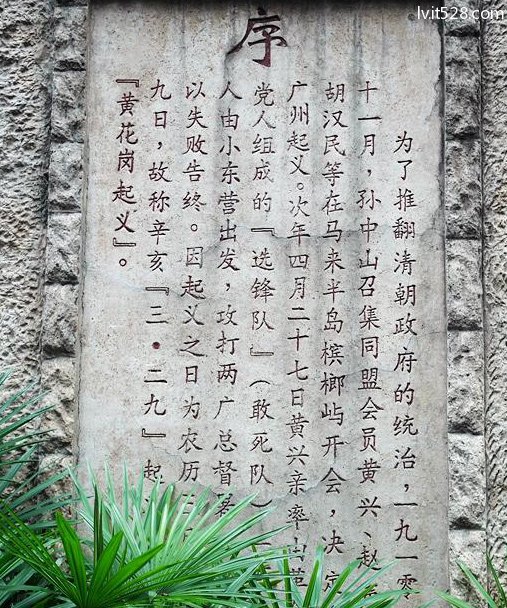 lvit528.com
序
为了推翻清朝政府的统治，一九一零
十一月，孙中山召集同盟会员黄兴、赵
胡汉民等在马来半岛槟榔屿开会，决定
广州起义。次年四月二十七日黄兴亲率
党人组成的『选锋队』（敢死队）
人由小东营出发，攻打两广总督
以失败告终。因起义之日为农历三
九日，故称辛亥『三·二九』起
『黄花岗起义』。